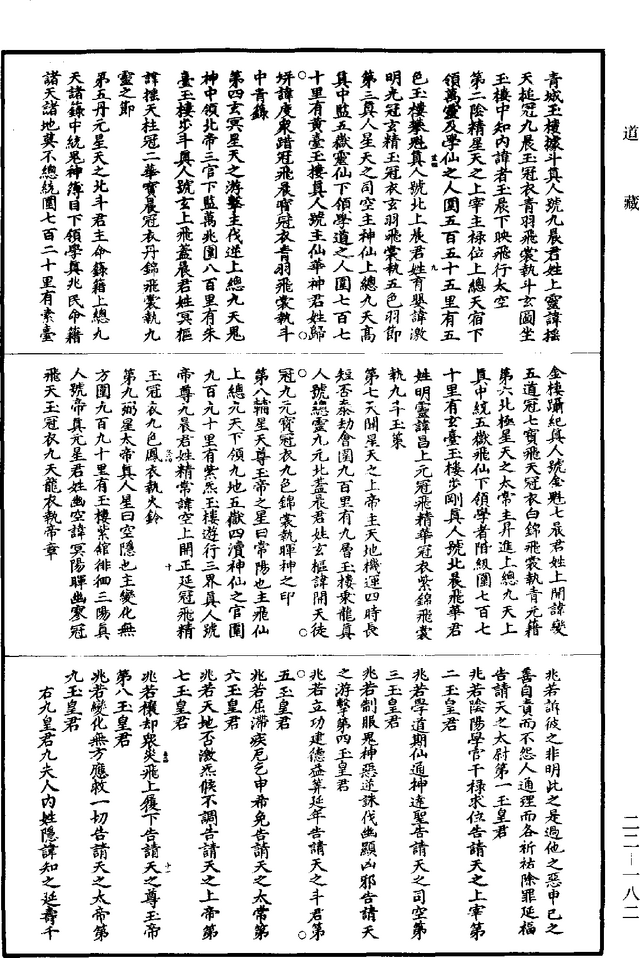 道藏
青城玉樓據斗真人號九晨君姓上靈諱搖
天槌冠九晨玉冠衣青羽飛裳執斗玄圖坐
玉樓中知內諱者玉晨下映飛行太空
第二陰精星天之上宰主祿位上總天宿下
領萬靈及學仙之人圍五百五十五里有五
色玉樓攀魁真人號北上晨君姓育嬰諱激
明光冠玄精玉冠衣玄羽飛裳執五色羽節
第三真人星天之司空主神仙上總九天高
真中監五嶽靈仙下領學道之人圍七百七
十里有黃臺玉樓真人號主仙華神君姓歸
諱度衆踏冠飛晨寶冠衣青羽飛裳執斗
中青籙
第四玄冥星天之游擊主伐逆上總九天鬼
神中領北帝三官下監萬兆圍八百里有朱
臺玉樓步斗真人號玄上飛蓋晨君姓冥樞
諱搖天柱冠二華寶晨冠衣丹錦飛裳執九
靈之節
第五丹元星天之北斗君主命籙籍上總九
天諸籙中統鬼神簿目下領學真兆民命籍
諸天諸地莫不總統圍七百二十里有素臺
金樓躡紀真人號金魁七晨君姓上開諱變
五道冠七寶飛天冠衣白錦飛裳執青元籍
第六北極星天之太常主升進上總九天上
真中統五嶽飛仙下領學者階級圍七百七
十里有玄臺玉樓步剛真人號北晨飛華君
姓明靈諱昌上元冠飛精華冠衣紫錦飛裳
執九斗玉策
第七天關星天之上帝主天地機運四時長
短否泰劫會圍九百里有九層玉樓乘龍真
人號總靈九元北蓋晨君姓玄樞諱開天徒
冠九元寶冠衣九色錦裳執暉神之印
第八輔星天尊玉帝之星曰常陽也主飛仙
上總元天下領九地五嶽四瀆神仙之官圍
九百九十里有紫炁玉樓遊行三界真人號
帝尊九晨君姓精常諱空上開正延冠飛精
玉冠衣九色鳳衣執火鈴
第九弼星太帝真人星曰空隱也主變化無
方圍九百九十里有玉樓紫館徘徊三陽真
人號帝真元星君姓幽空諱冥陽暉幽寥冠
飛天玉冠衣九天龍衣執帝章
兆若訴彼之非明此之是過他之惡申己之
善自責而不怨人通理而各祈祐除罪延福
告請天之太尉第一玉皇君
兆若陰陽學官干祿求位告請天之上宰第
二玉皇君
兆若學道期仙通神達聖告請天之司空第
三玉皇君
兆若制服鬼神惡逆誅伐幽顯凶邪告請天
之游擊第四玉皇君
兆若立功建德益筭延年告請天之斗君第
五玉皇君
兆若屈滯疾厄乞申希免告請天之太常第
六玉皇君
兆若天地否激炁候不調告請天之上帝第
七玉皇君
兆若禳却眾災飛上獲下告請天之尊玉帝
第八玉皇君
兆若變化無方應救一切告請天之太帝第
九玉皇君
右九皇君九夫人內姓隱諱知之延壽千
二二—一八二